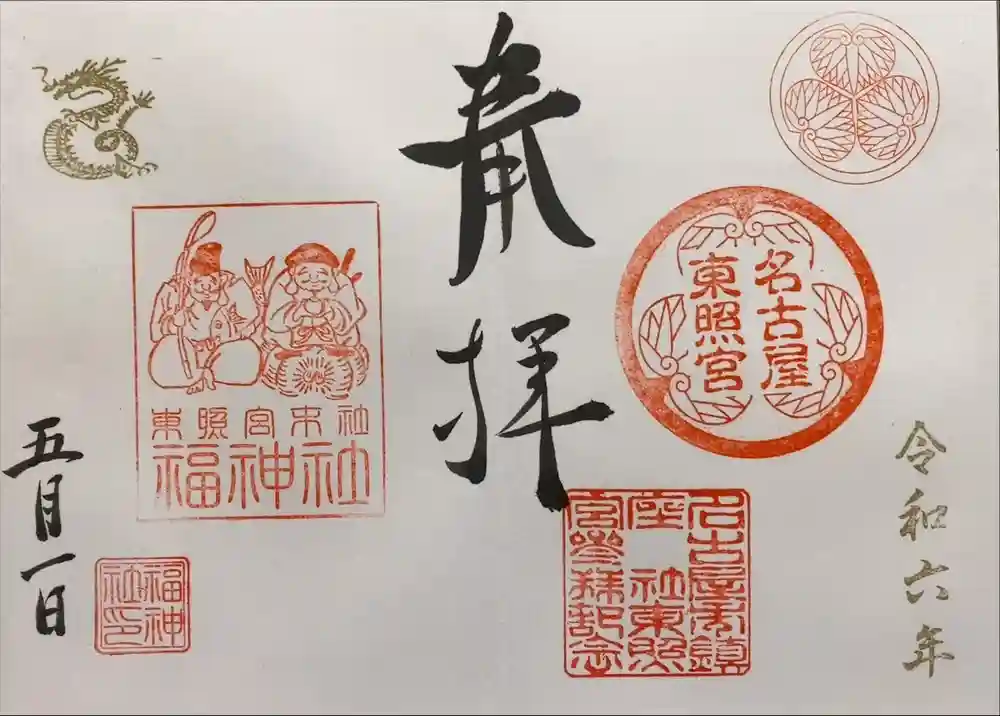 令和六年
名古屋
東照宮
名古屋市鎮
座 社東照
宮参拝記念
奉拝
東照宮末社
福神社
福神
社印
五月一日